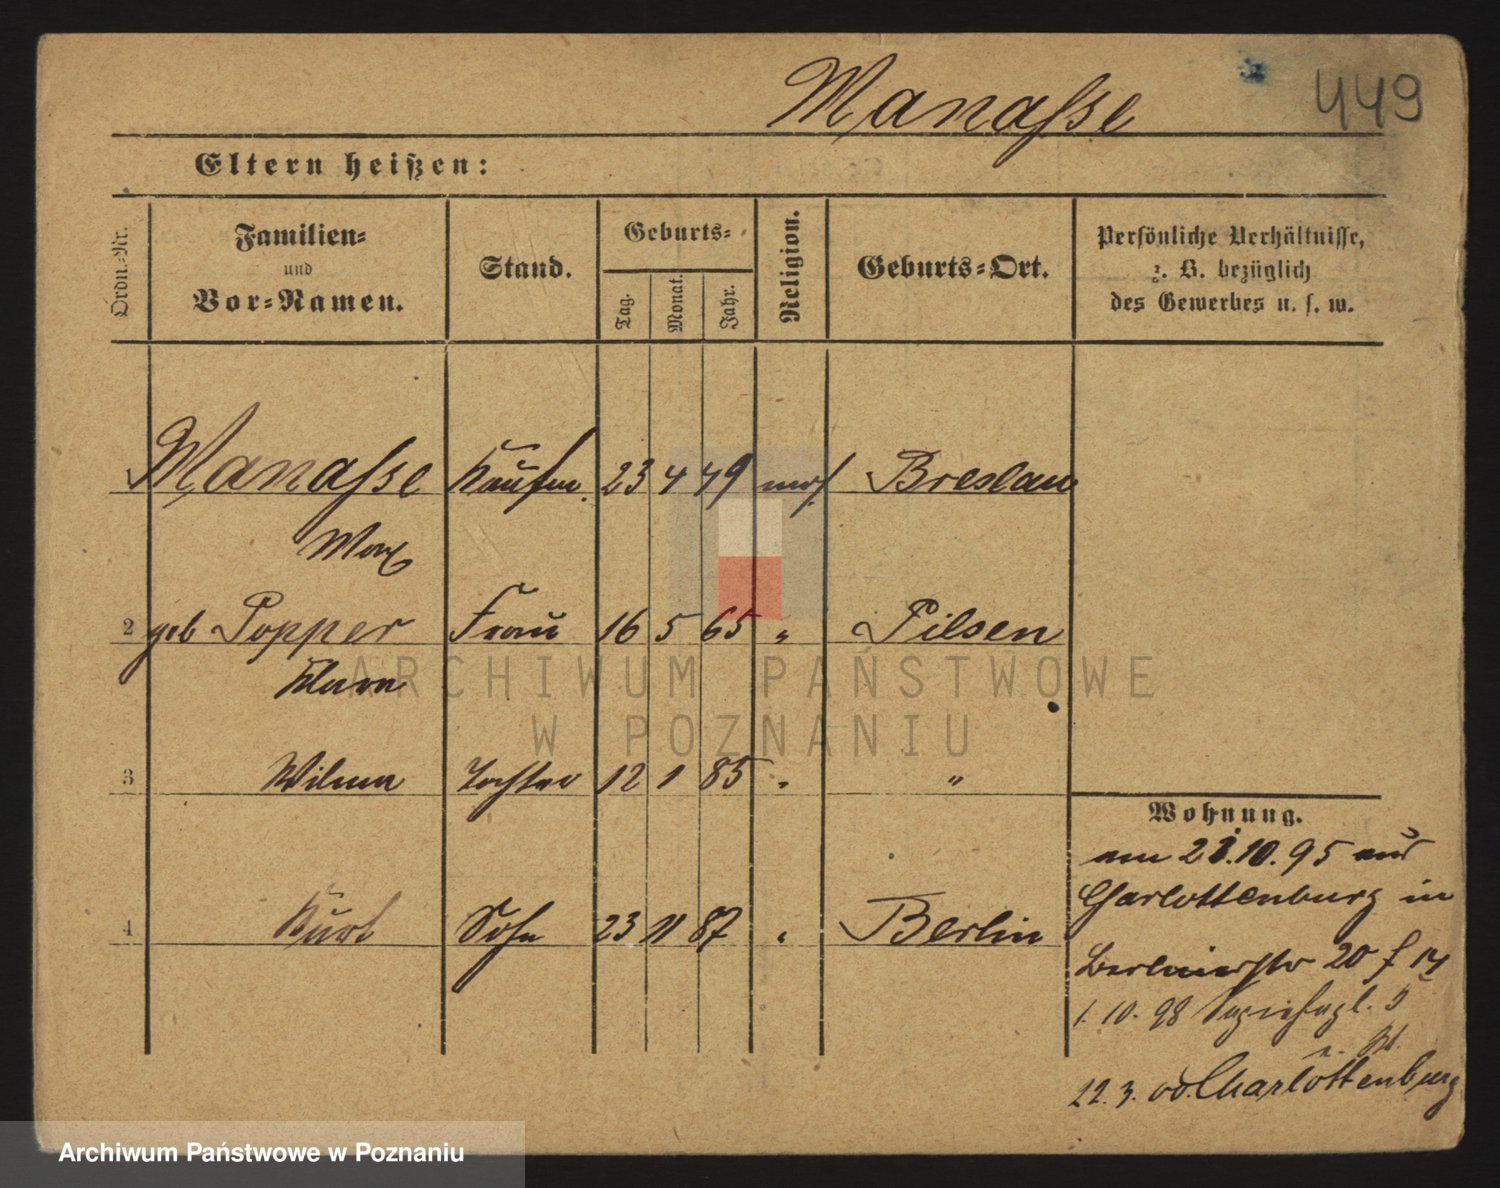 Manasse
449
Eltern heißen:
Ordn.-Nr.
Familien-
und
Vor-Namen.
Stand.
Geburts-
Tag.
Monat.
Jahr.
Religion.
Geburts-Ort.
Persönliche Verhältnisse,
z. B. bezüglich
des Gewerbes u. s. w.
1 Manasse Kaufm. 23 4 49 mos. Breslau
Max
2 geb Popper Frau 16 5 65 " Pilsen
Klara
3 Wilma Tochter 12 1 85 " "
4 Kurt Sohn 23 11 87 " Berlin
Wohnung.
am 21.10.95 aus
Charlottenburg in
Berlinerstr 20 f 14
1.10.98
22.3. 00. Charlottenburg
ARCHIWUM PAŃSTWOWE
W POZNANIU
Archiwum Państwowe w Poznaniu